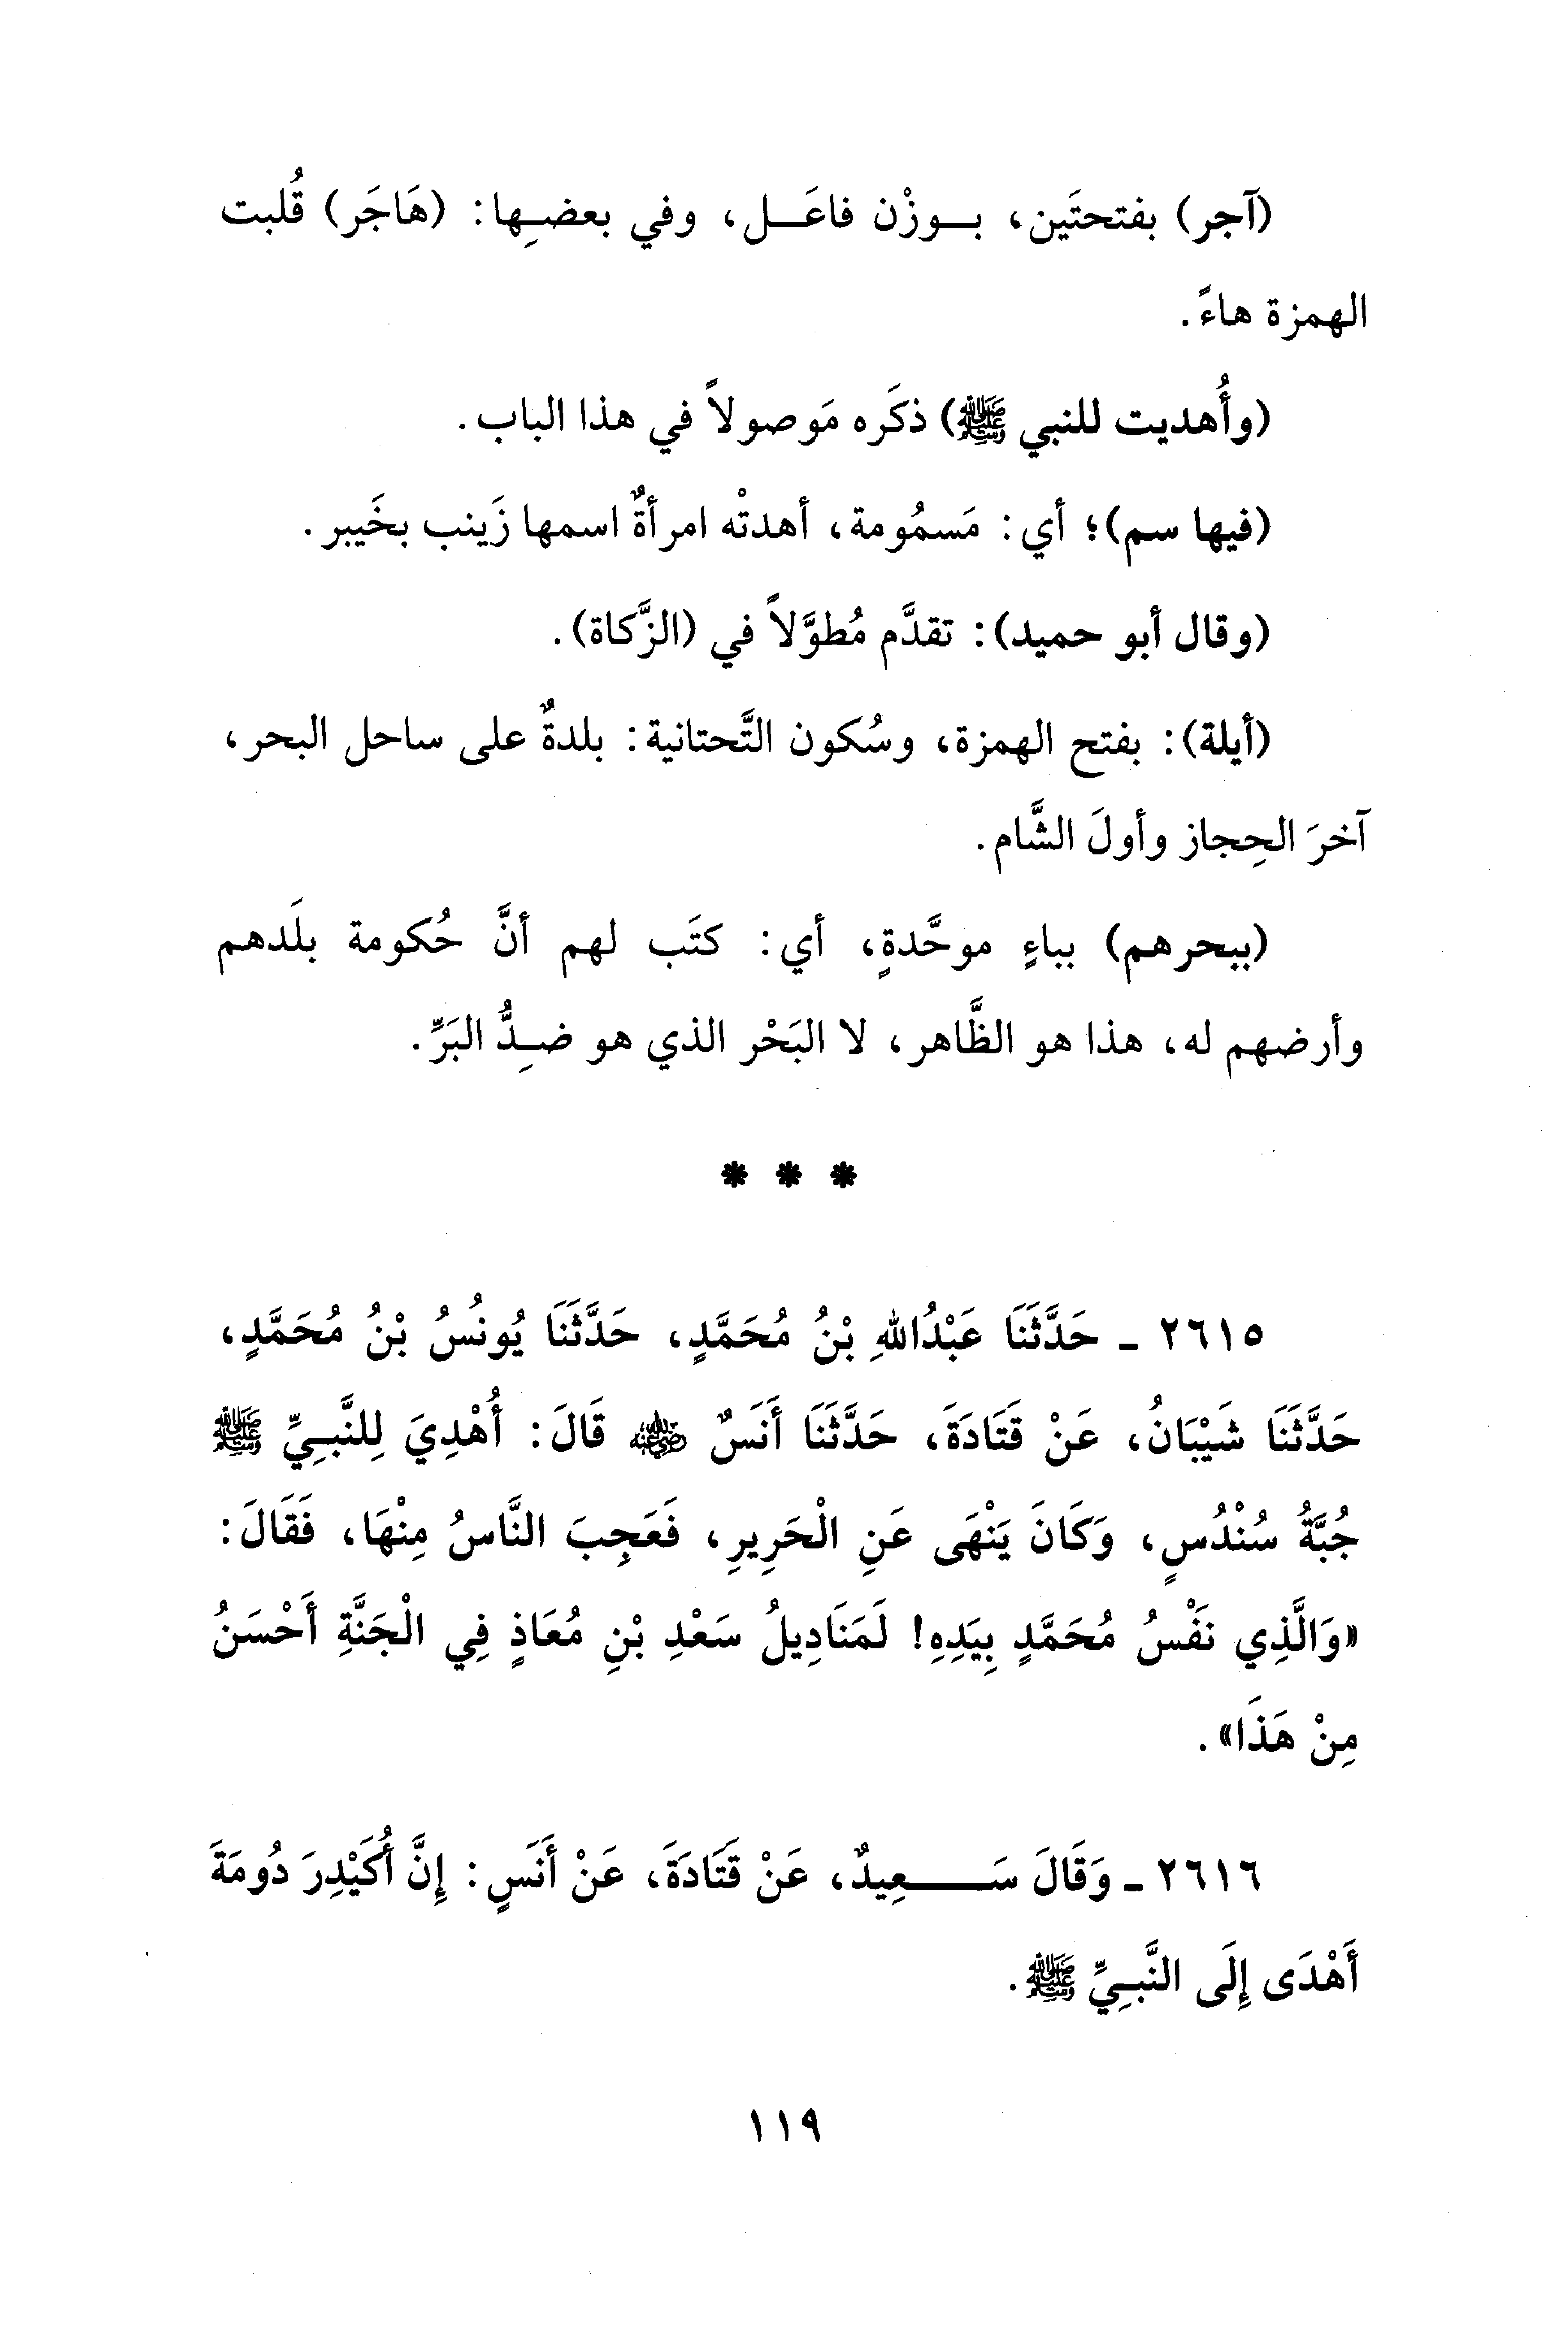 (آجر) بفتحتَين، بـوزْن فاعَـل، وفي بعضِها: (هَاجَر) قُلبت
الهمزة هاءً.
(وأُهديت للنبي ﷺ) ذكَره مَوصولاً في هذا الباب.
(فيها سم)؛ أي: مَسمُومة، أهدتْه امرأةٌ اسمها زَينب بخَيبر.
(وقال أبو حميد): تقدَّم مُطوَّلاً في (الزَّكاة).
(أيلة): بفتح الهمزة، وسُكون التَّحتانية: بلدةٌ على ساحل البحر،
آخرَ الحِجاز وأولَ الشَّام.
(ببحرهم) بباءٍ موحَّدةٍ، أي: كتَب لهم أنَّ حُكومة بلَدهم
وأرضهم له، هذا هو الظَّاهر، لا البَحْر الذي هو ضِدُّ البَرِّ.
* * *
٢٦١٥ - حَدَّثَنَا عَبْدُاللهِ بْنُ مُحَمَّدٍ، حَدَّثَنَا يُونُسُ بْنُ مُحَمَّدٍ،
حَدَّثَنَا شَيْبَانُ، عَنْ قَتَادَةَ، حَدَّثَنَا أَنَسٌ رضي الله عنه قَالَ: أُهْدِيَ لِلنَّبِيِّ ﷺ
جُبَّةُ سُنْدُسٍ، وَكَانَ يَنْهَى عَنِ الْحَرِيرِ، فَعَجِبَ النَّاسُ مِنْهَا، فَقَالَ:
«وَالَّذِي نَفْسُ مُحَمَّدٍ بِيَدِهِ! لَمَنَادِيلُ سَعْدِ بْنِ مُعَاذٍ فِي الْجَنَّةِ أَحْسَنُ
مِنْ هَذَا».
٢٦١٦ - وَقَالَ سَـعِيدٌ، عَنْ قَتَادَةَ، عَنْ أَنَسٍ: إِنَّ أُكَيْدِرَ دُومَةَ
أَهْدَى إِلَى النَّبِيِّ ﷺ.
١١٩